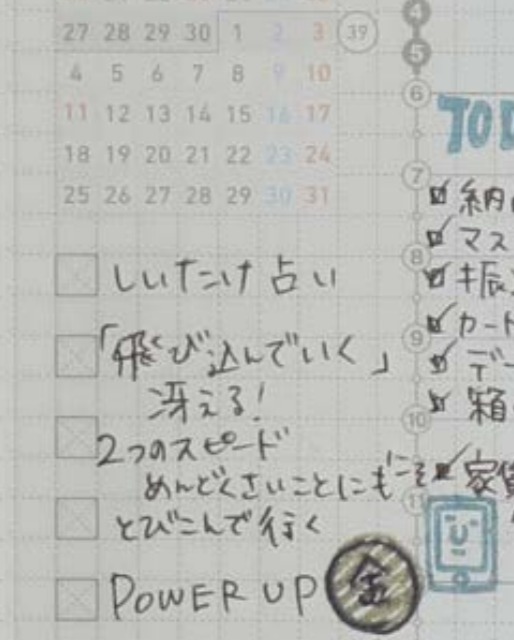 27 28 29 30 1 2 3 39
4 5 6 7 8 9 10
11 12 13 14 15 16 17
18 19 20 21 22 23 24
25 26 27 28 29 30 31
しいたけ占い
「飛び込んでいく」
冴える!
2つのスピード
めんどくさいことにもこそ
とびこんで行く
POWER UP 金
4
5
6
7
8
9
10
11
TOD
納
マス
カート
デー
箱
家賃